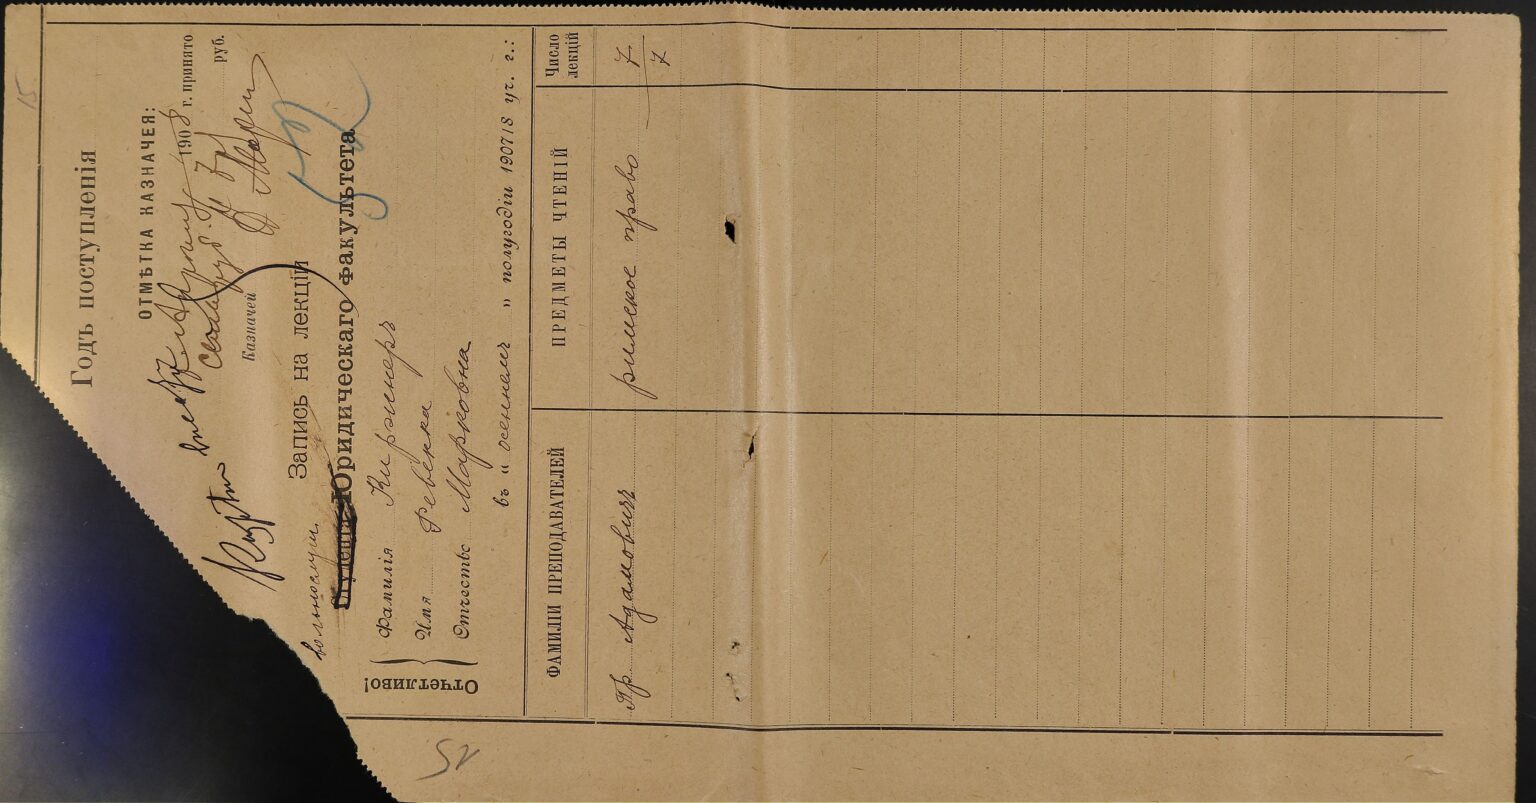 15
Годъ поступленія
ОТМѢТКА КАЗНАЧЕЯ:
1908 г. принято
руб.
Казначей
Запись на лекціи
вольнослуш.
студента Юридическаго Факультета
Отчетливо!
Фамилія Киржнеръ
Имя Ревекка
Отчество Марковна
въ „ осеннемъ " полугодіи 190718 уч. г.:
ФАМИЛІИ ПРЕПОДАВАТЕЛЕЙ ПРЕДМЕТЫ ЧТЕНІЙ Число лекцій
Пр. Адамовичъ римское право 7
7
52